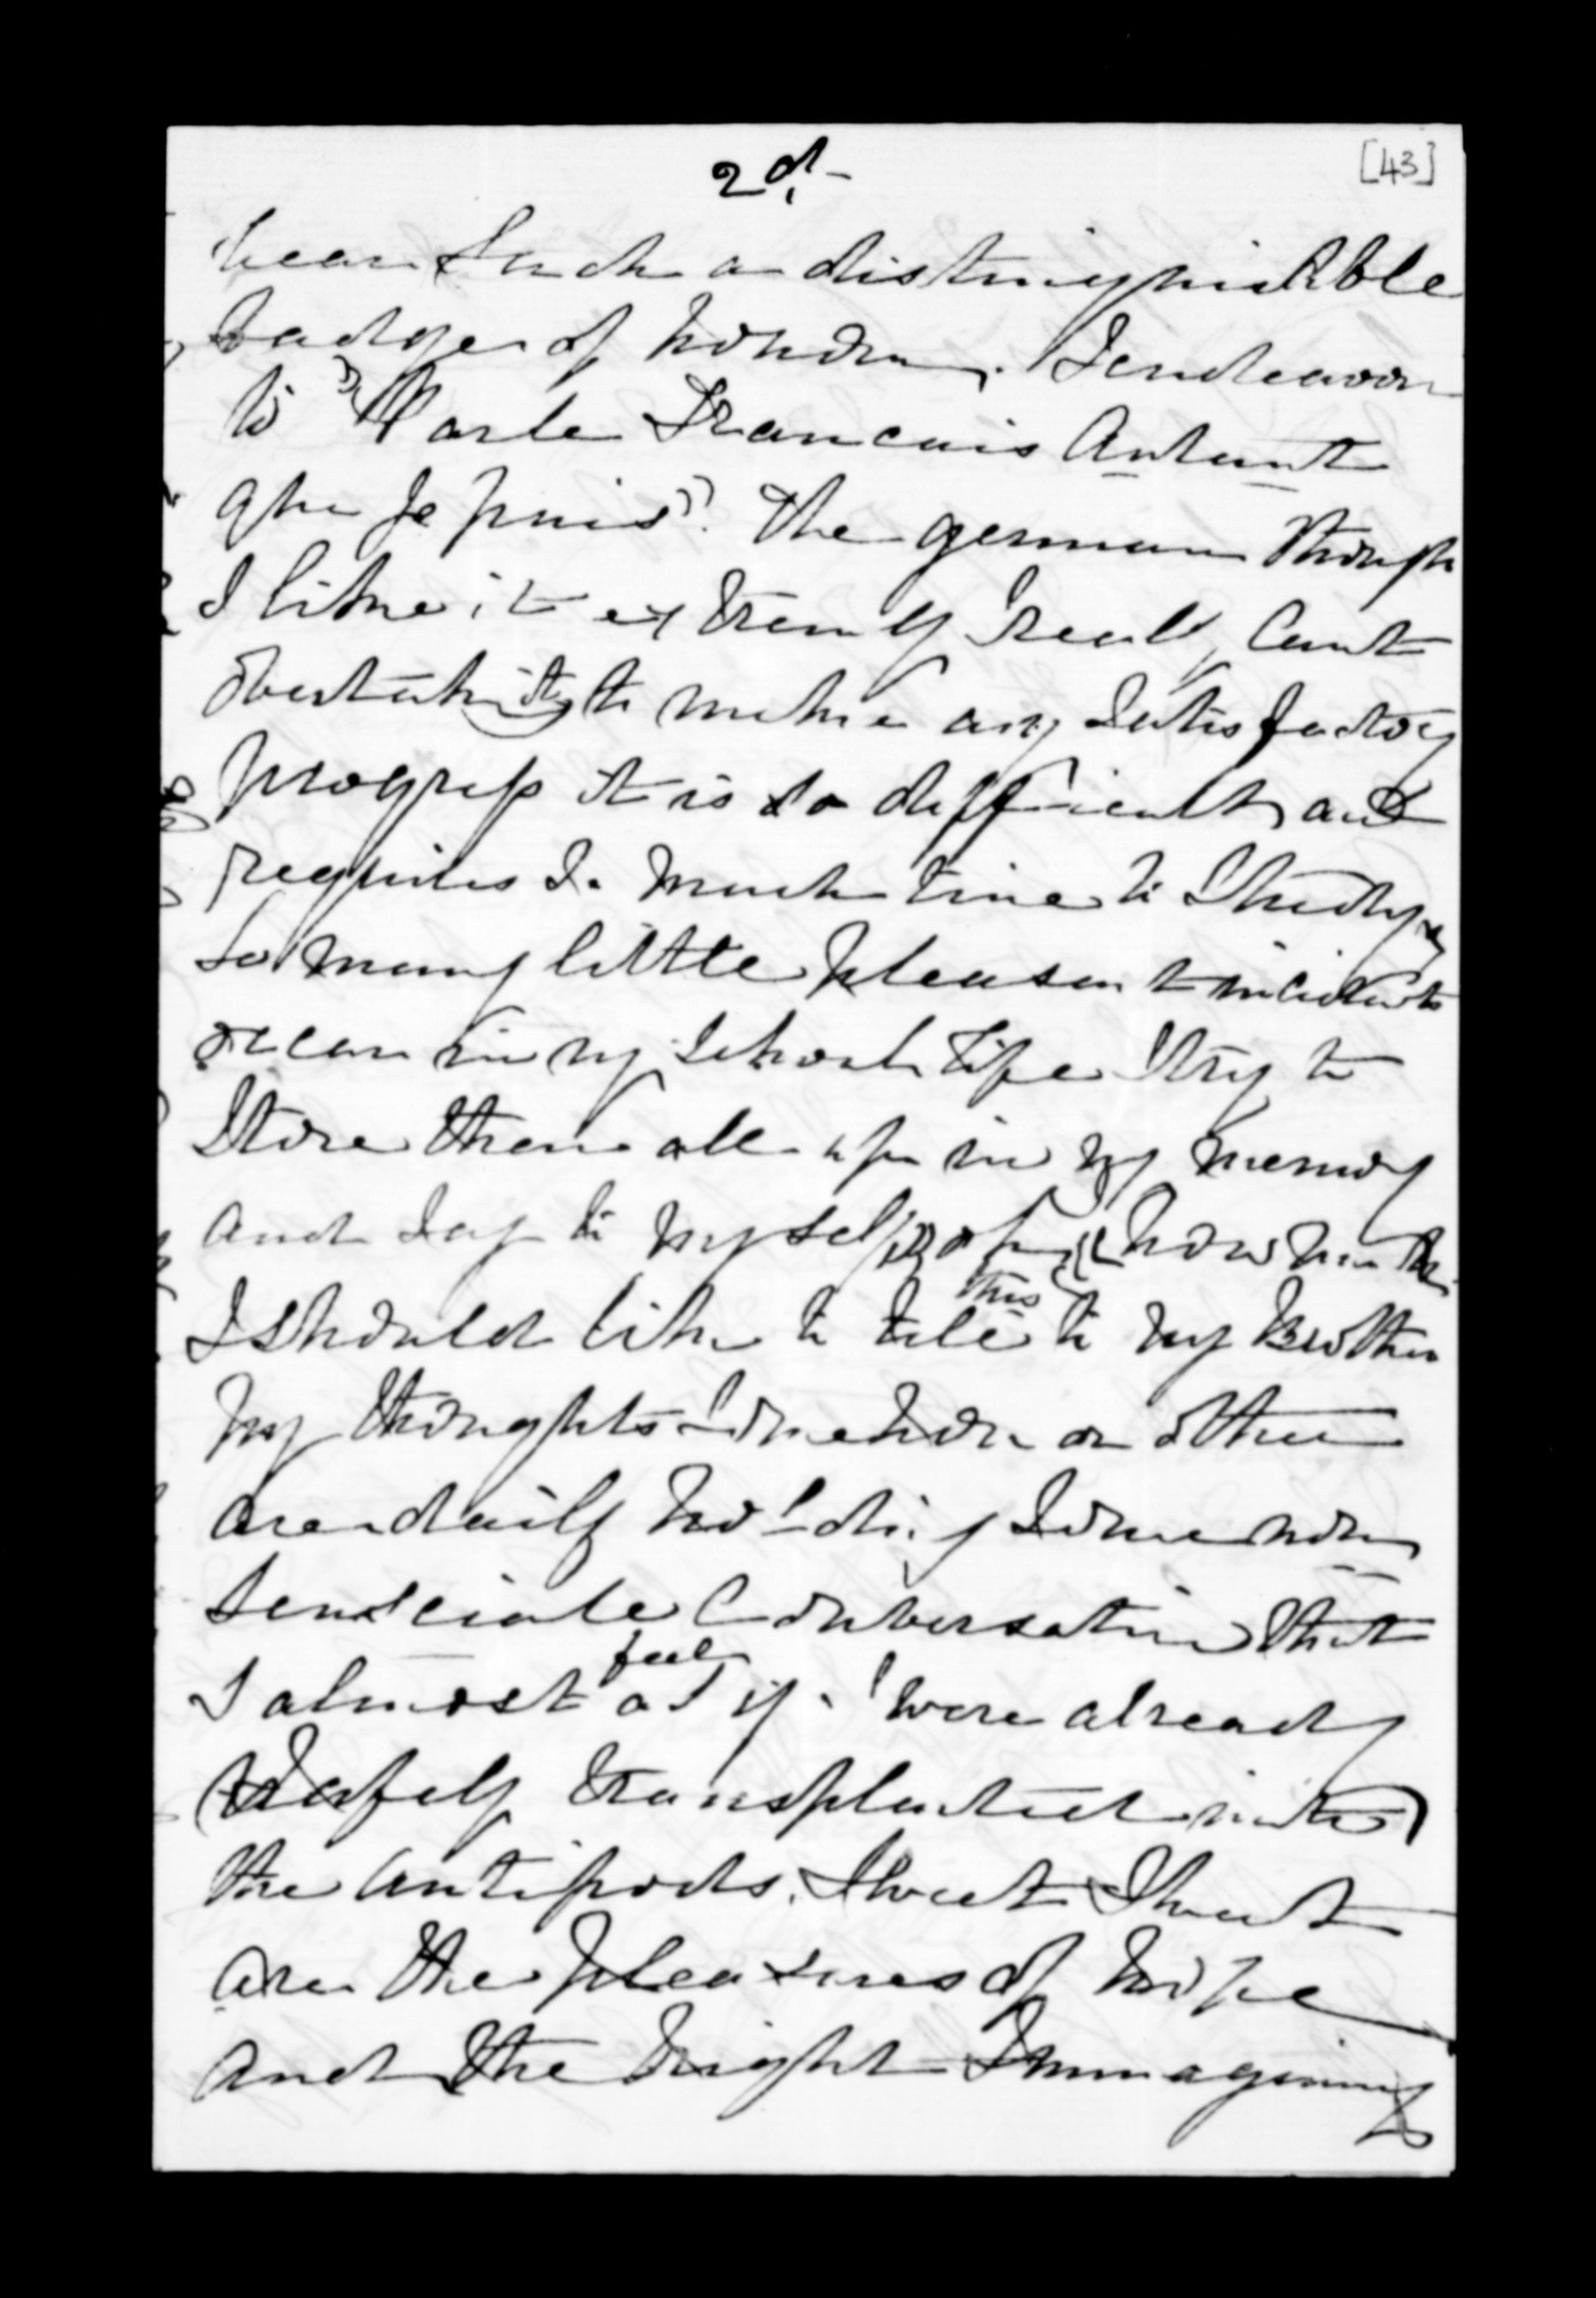 2d.-
[43]
bear such a distinguishible
badge of honour. I endeavour
to "Parle Francais Autant
que Je puis". The german though
I like it extremly I really cant
to make any satisfactory
progress it is so difficult, and
requires so much time to study,
so many little pleasant incidents
occur in my school life I try to
store them all up in my memory
and say to myself "oh," "how much
I should like to tele this to my Brother
my thoughts somehow or other
are daily holding some non
senscicale Conversation that
I almost feel as if I were already
(safely transplanted into)
the antipods. Sweet Sweet
are the pleasures of hope
and the bright Immaginings